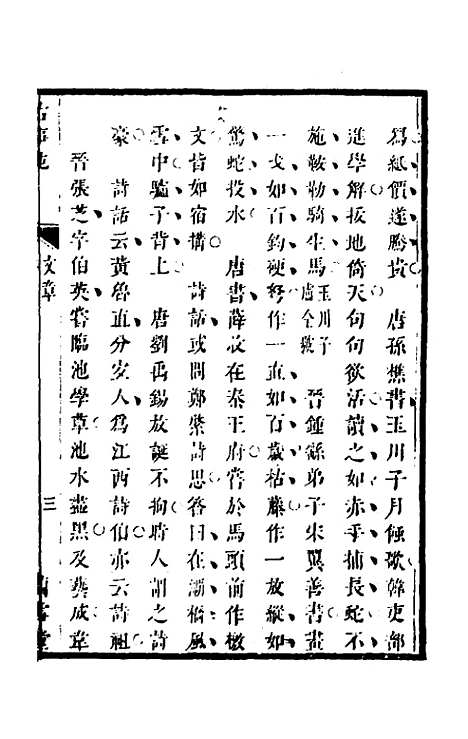 爲紙價遂騰貴　唐孫樵書玉川子月蝕歌韓吏部
進學解拔地倚天句句欲活讀之如赤手捕長蛇不
施鞍勒騎生馬玉川子盧仝號　晉鍾繇弟子宋翼善書畫
一戈如百鈞硬弩作一直如百歲枯藤作一放縱如
驚蛇投水　唐書薛收在秦王府嘗於馬頭前作檄
文皆如宿搆　詩話或問鄭綮詩思答曰在灞橋風
雪中驢子背上　唐劉禹錫放誕不拘時人謂之詩
豪　詩話云黃魯直分安人爲江西詩仙亦云詩祖
晉張芝字伯英嘗臨池學草池水盡黑及義成章
文章
三